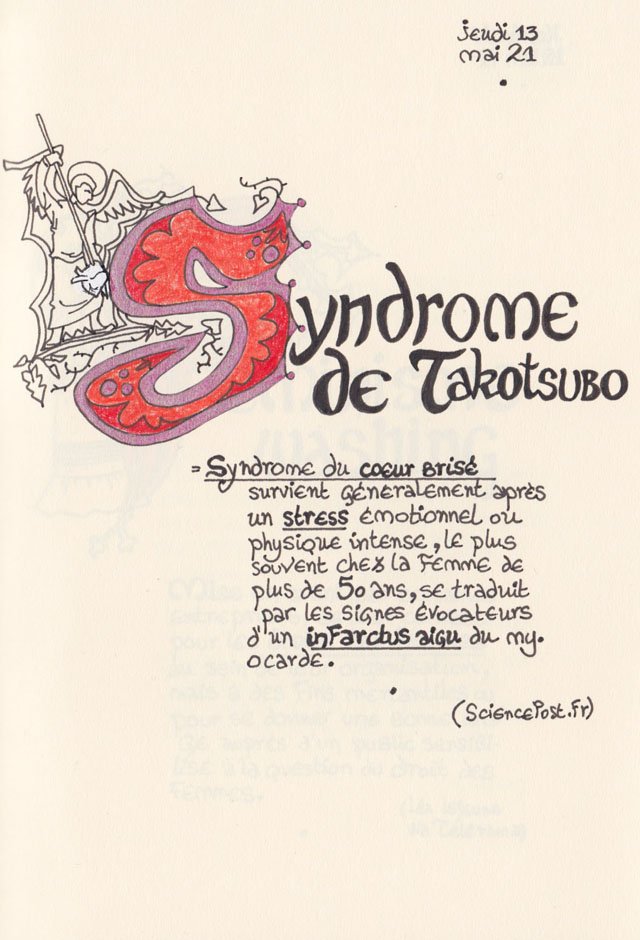 jeudi 13
mai 21
Syndrome
de Takotsubo
= Syndrome du coeur brisé
survient généralement après
un stress émotionnel ou
physique intense, le plus
souvent chez la femme de
plus de 50 ans, se traduit
par les signes évocateurs
d'un infarctus aigu du my.
ocarde.
(SciencePost.fr)